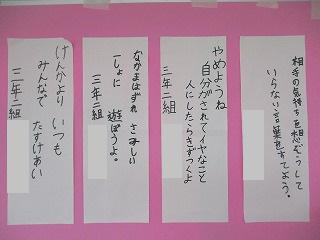 相手の気持ちを想ぞうして
いらない言葉をすてよう。
やめようね
自分がされてイヤなこと
人にしたらきずつくよ
三年二組
なかまはずれ さみしい
いっしょに 遊ぼうよ。
三年二組
けんかより いつも
みんなで たすけあい
三年二組